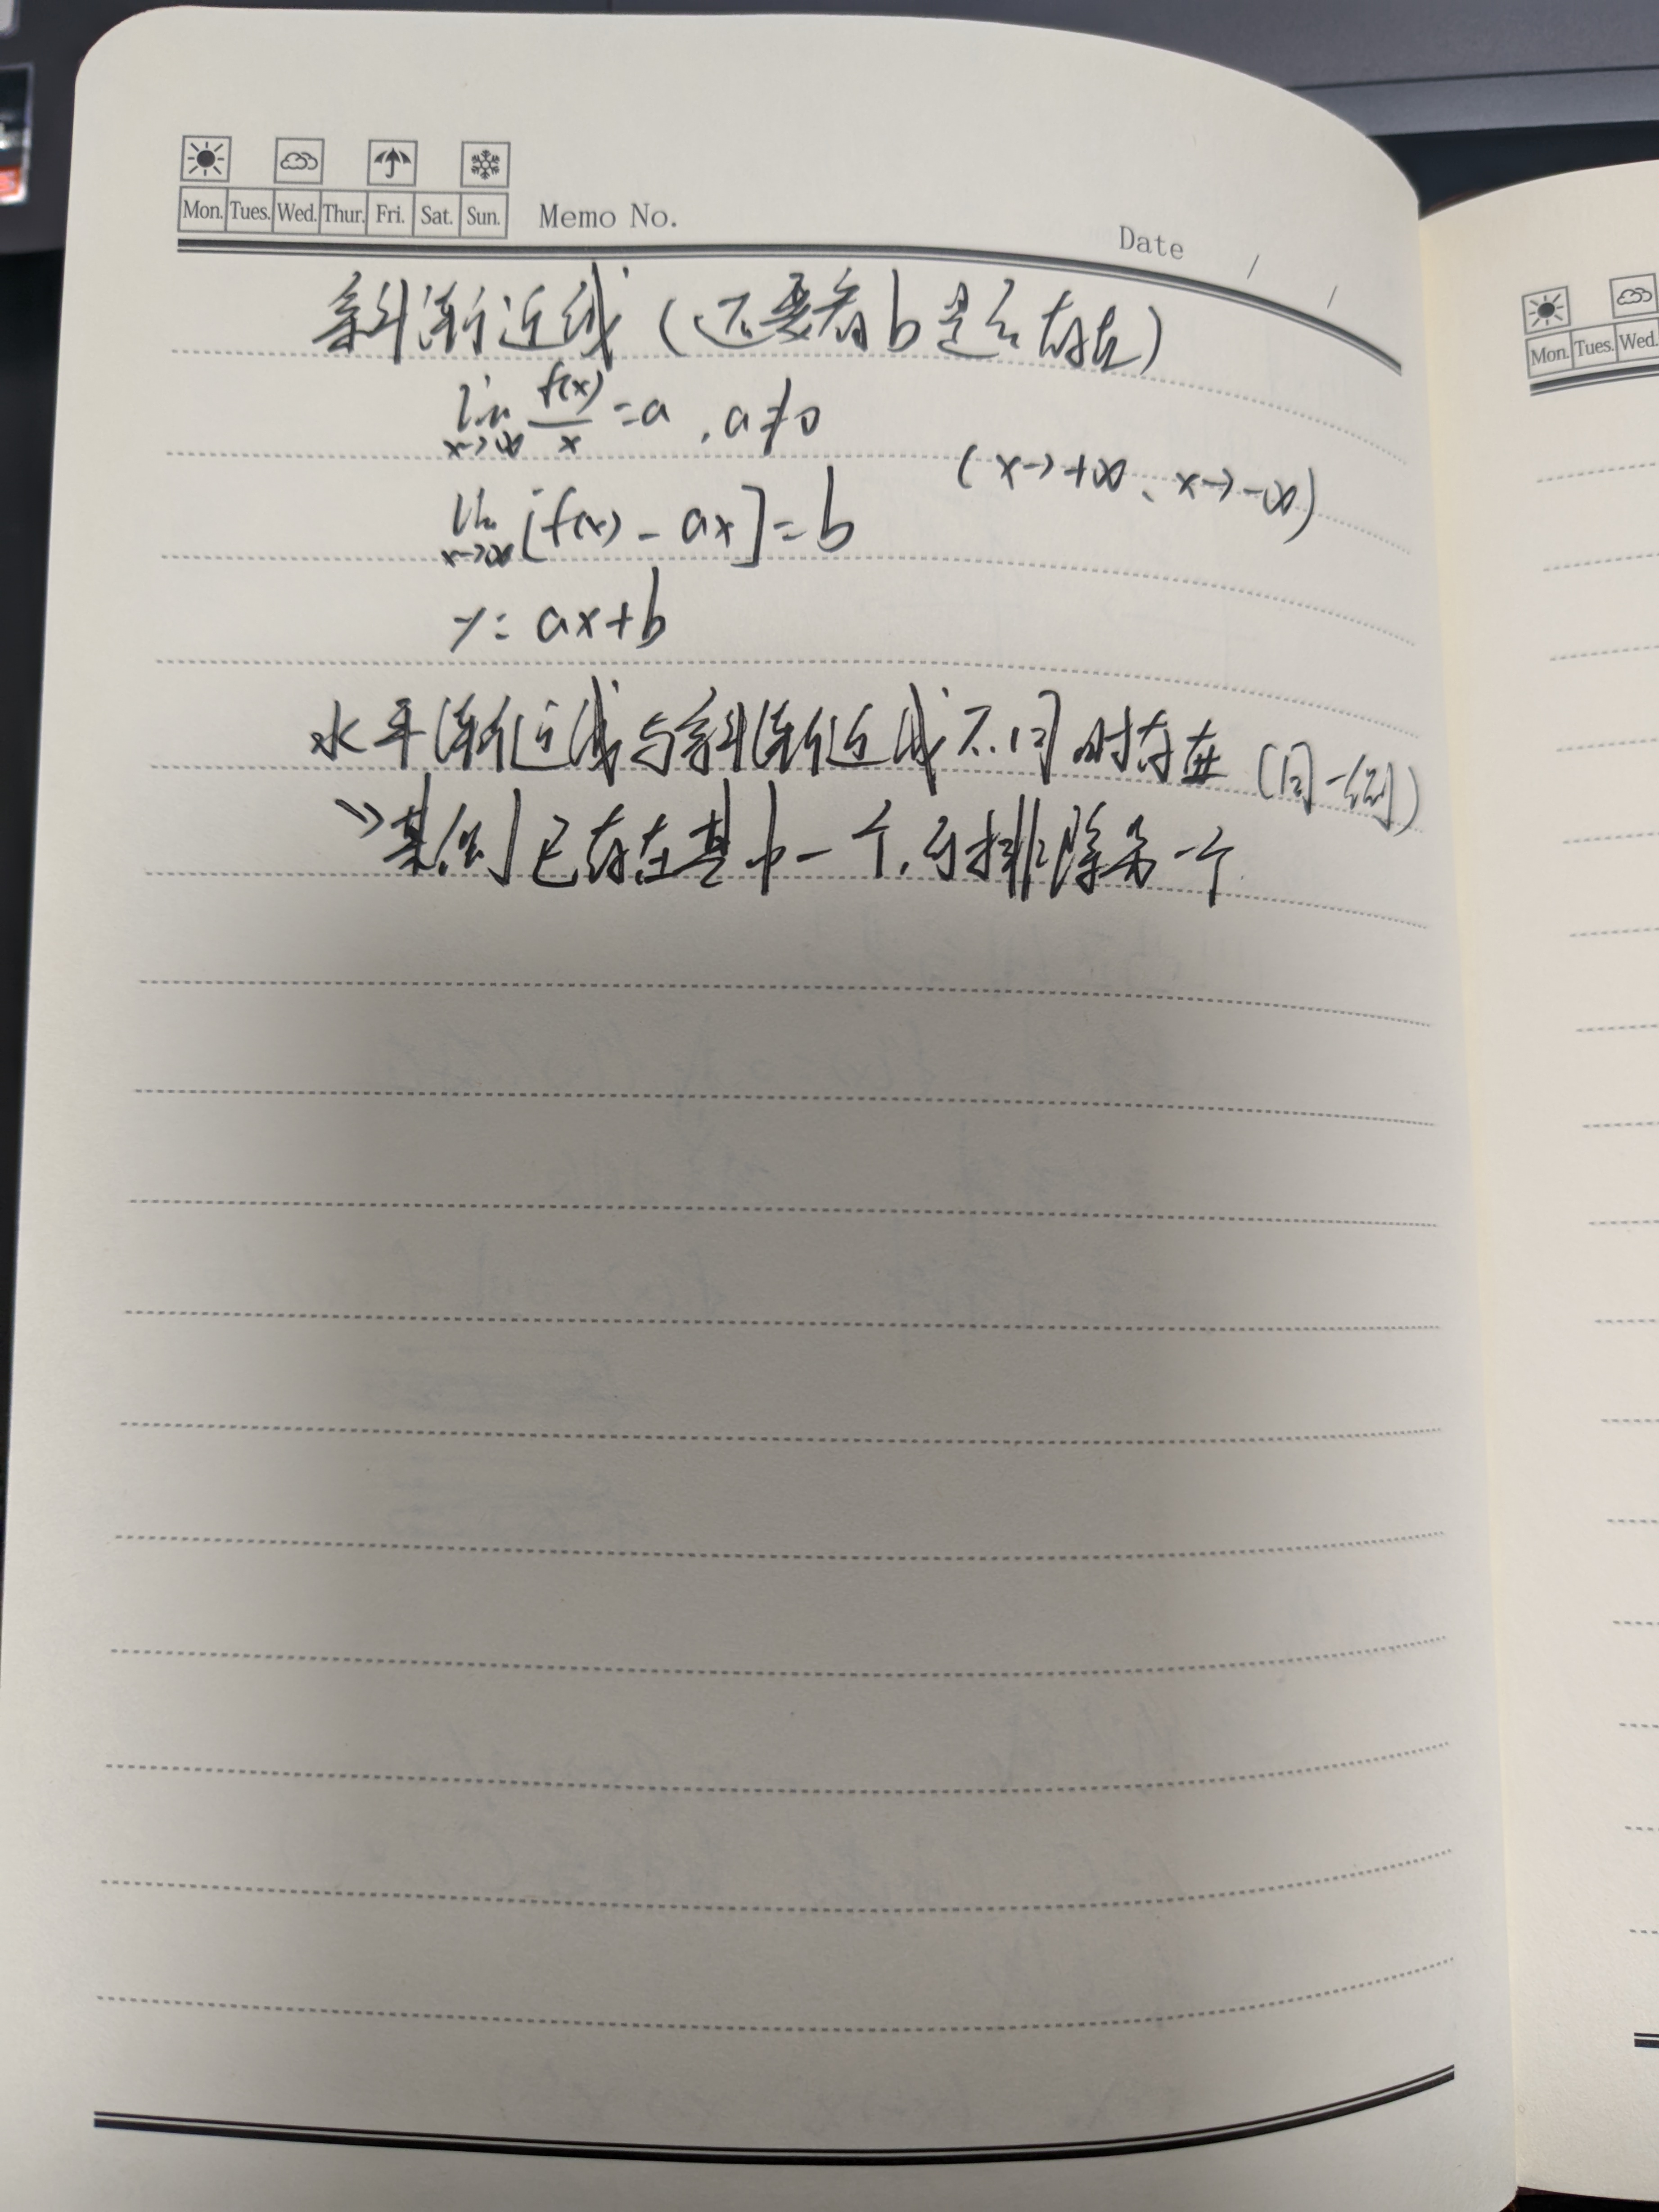 Mon. Tues. Wed. Thur. Fri. Sat. Sun. Memo No.
Date / /
斜渐近线 (还要看b是否存在)
lim x→∞ f(x)/x = a , a≠0
(x→+∞、x→-∞)
lim x→∞ [f(x) - ax] = b
y = ax+b
水平渐近线与斜渐近线不同时存在 (同一侧)
》某侧已存在其中一个,可排除另一个
Mon. Tues. Wed.